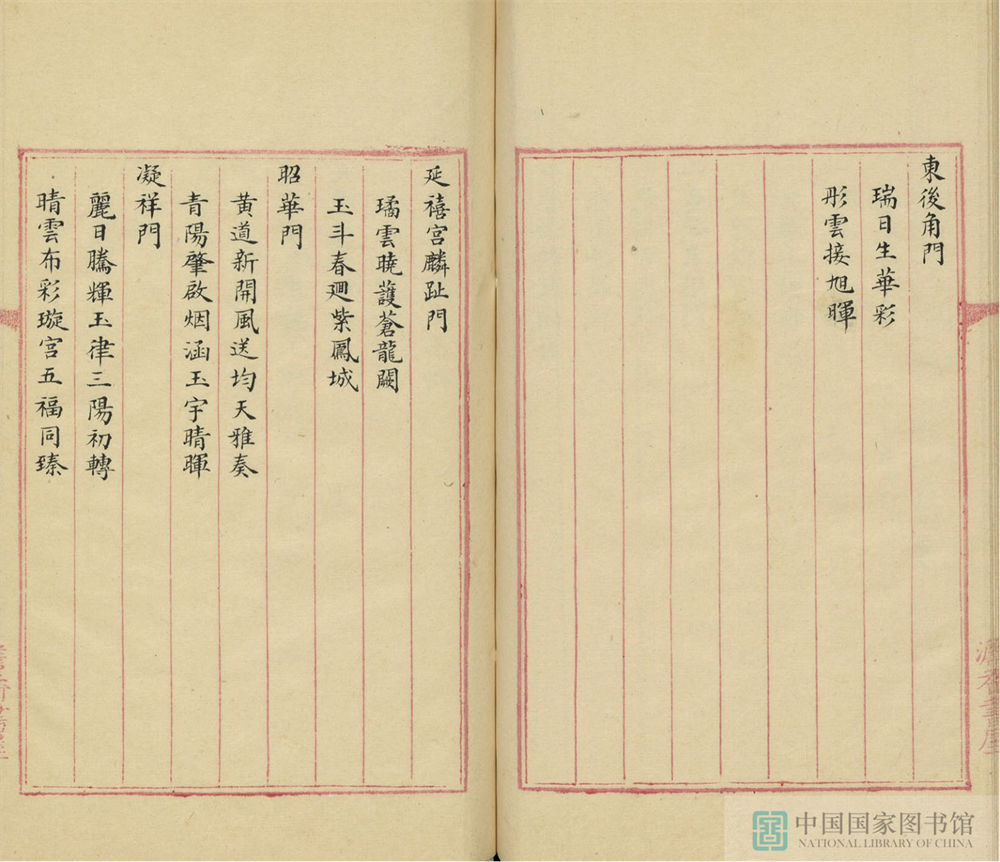 東後角門
瑞日生華彩
彤雲接旭暉
延禧宮麟趾門
璚雲曉護蒼龍闕
玉斗春廻紫鳳城
昭華門
黄道新開風送均天雅奏
青陽肇啟烟涵玉宇晴暉
凝祥門
麗日騰輝玉律三陽初轉
晴雲布彩璇宮五福同臻
中国国家图书馆
NATIONAL LIBRARY OF CHINA